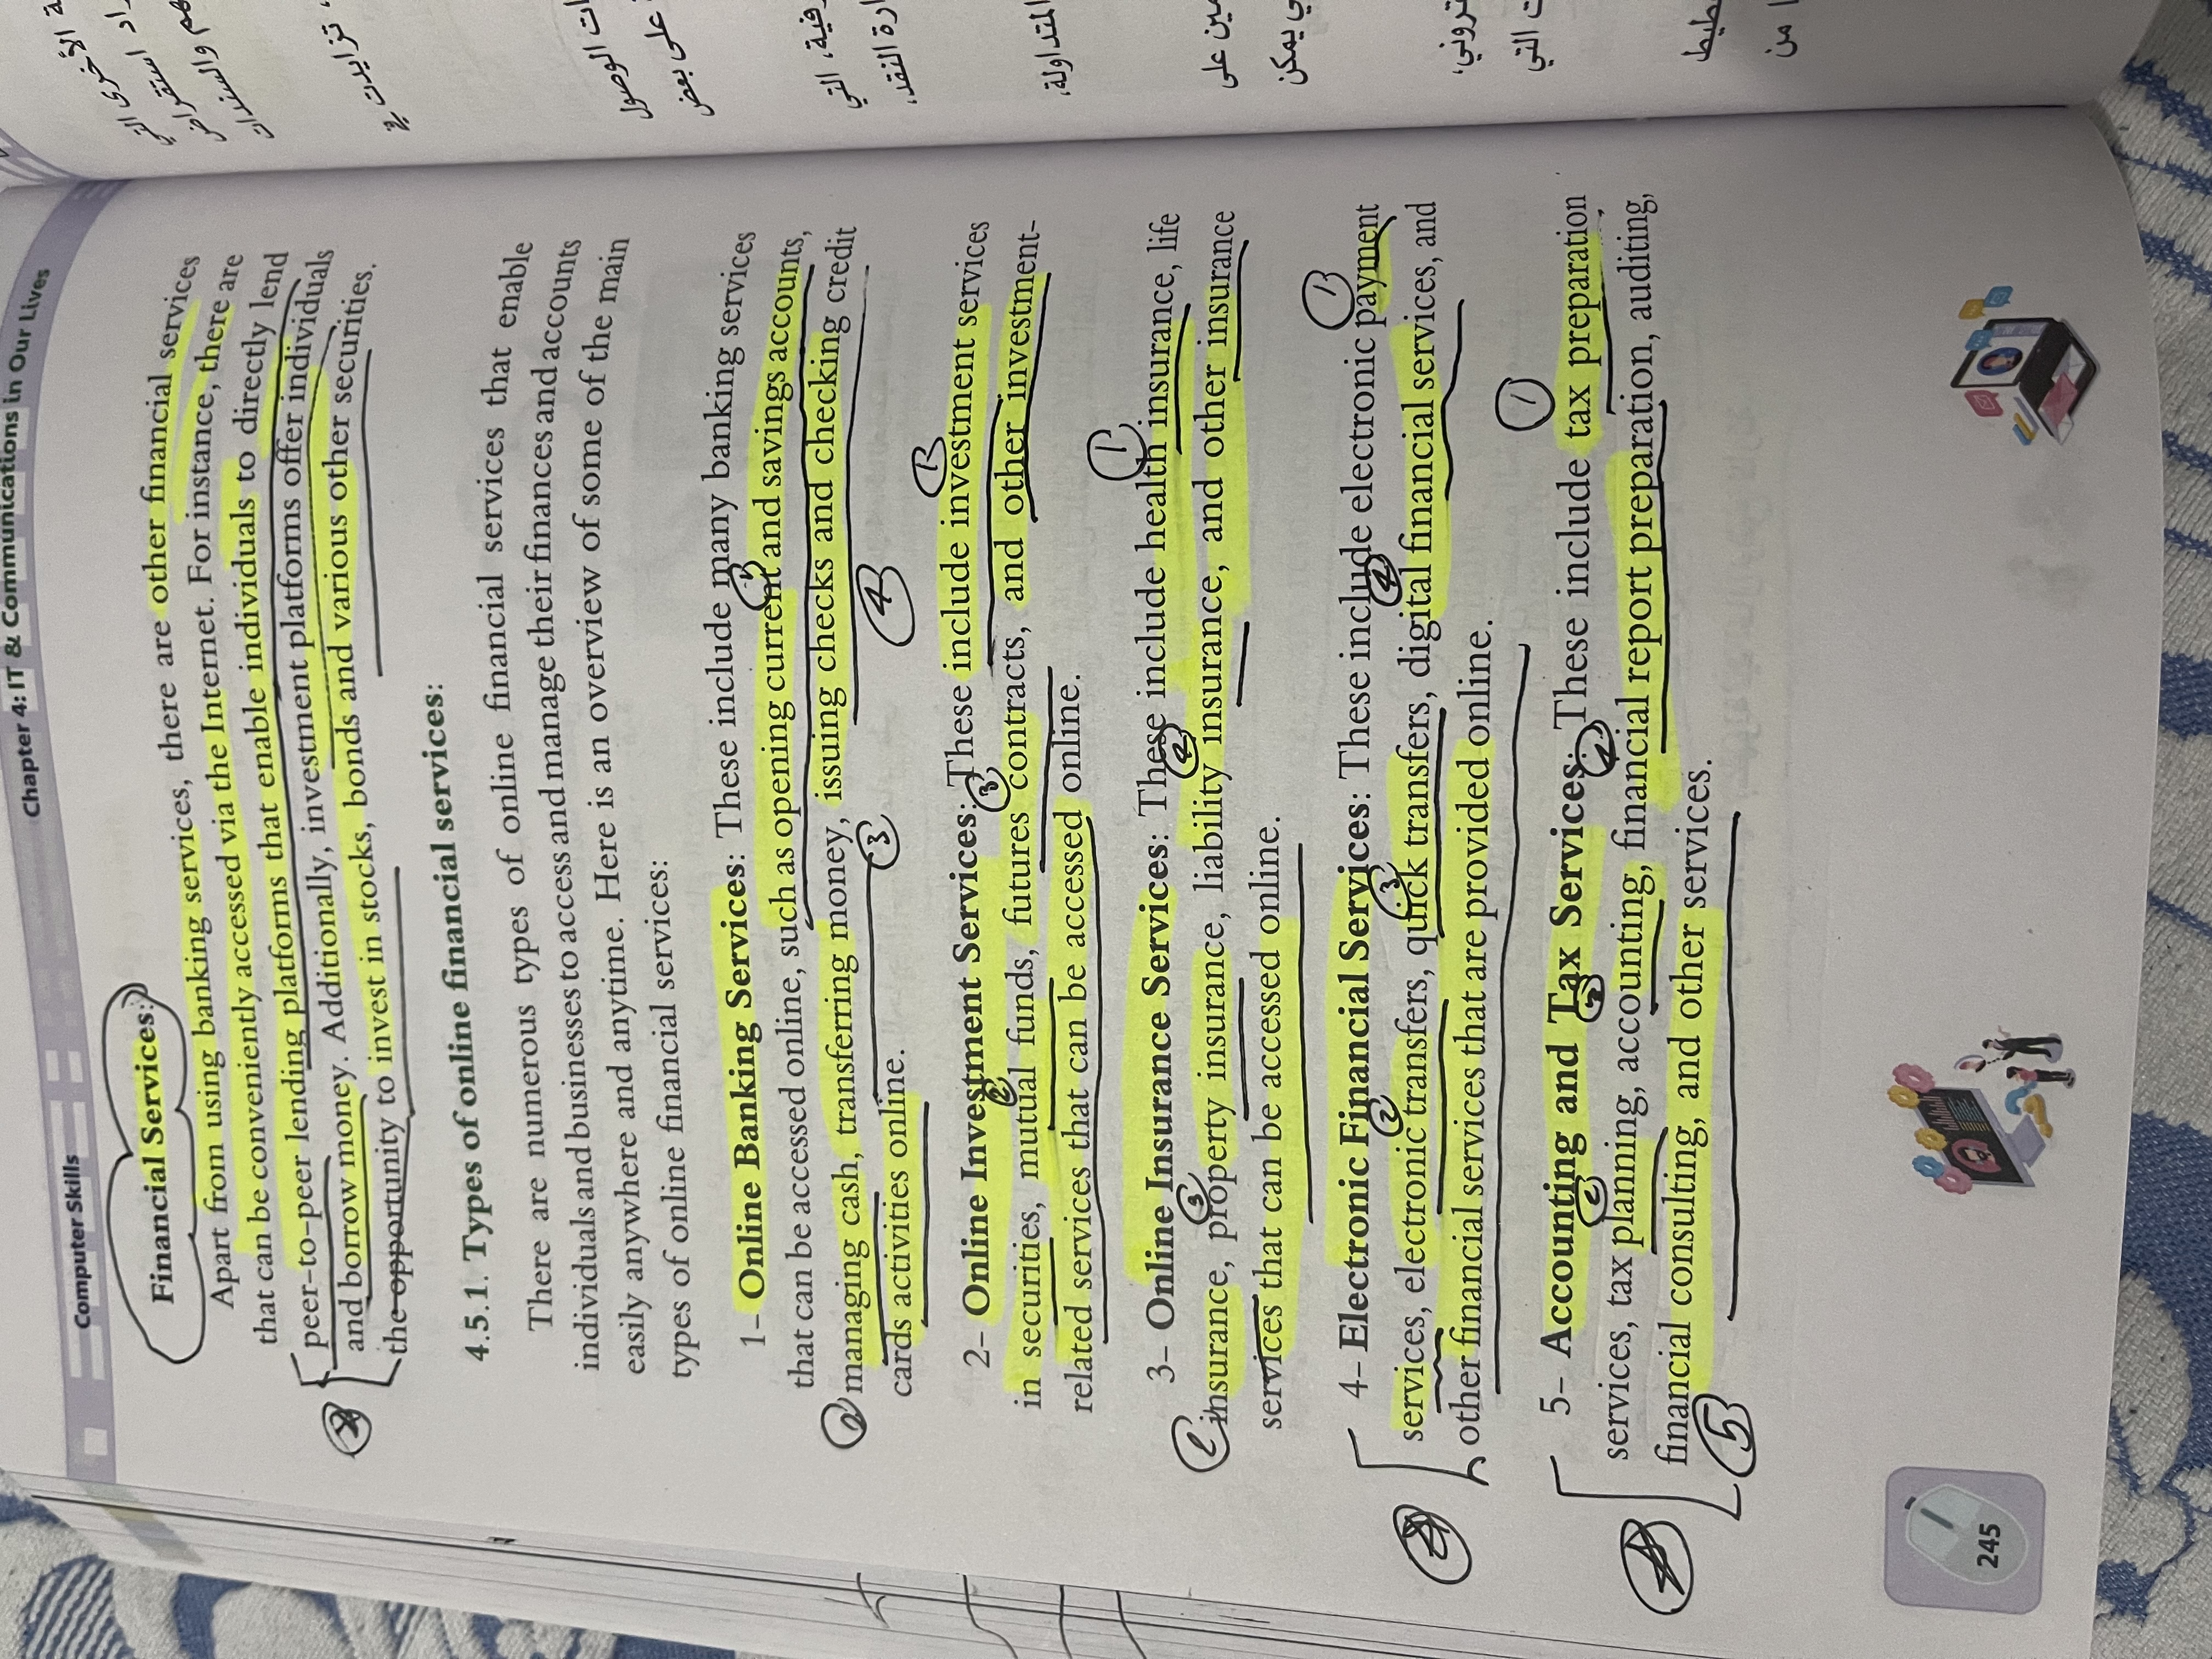 Computer Skills
Chapter 4: IT & Communications in Our Lives
Financial Services:
Apart from using banking services, there are other financial services
that can be conveniently accessed via the Internet. For instance, there are
peer-to-peer lending platforms that enable individuals to directly lend
and borrow money. Additionally, investment platforms offer individuals
the opportunity to invest in stocks, bonds and various other securities.
4.5.1. Types of online financial services:
There are numerous types of online financial services that enable
individuals and businesses to access and manage their finances and accounts
easily anywhere and anytime. Here is an overview of some of the main
types of online financial services:
1- Online Banking Services: These include many banking services
that can be accessed online, such as opening current and savings accounts,
managing cash, transferring money, issuing checks and checking credit
cards activities online.
2- Online Investment Services: These include investment services
in securities, mutual funds, futures contracts, and other investment-
related services that can be accessed online.
3- Online Insurance Services: These include health insurance, life
insurance, property insurance, liability insurance, and other insurance
services that can be accessed online.
4- Electronic Financial Services: These include electronic payment
services, electronic transfers, quick transfers, digital financial services, and
other financial services that are provided online.
5- Accounting and Tax Services: These include tax preparation
services, tax planning, accounting, financial report preparation, auditing,
financial consulting, and other services.
245
الأخرى التي
استقراض
والسندات
تزايدت
الوصول
على بعض
التي
النقد،
المتداولة،
على
يمكن
التي
من